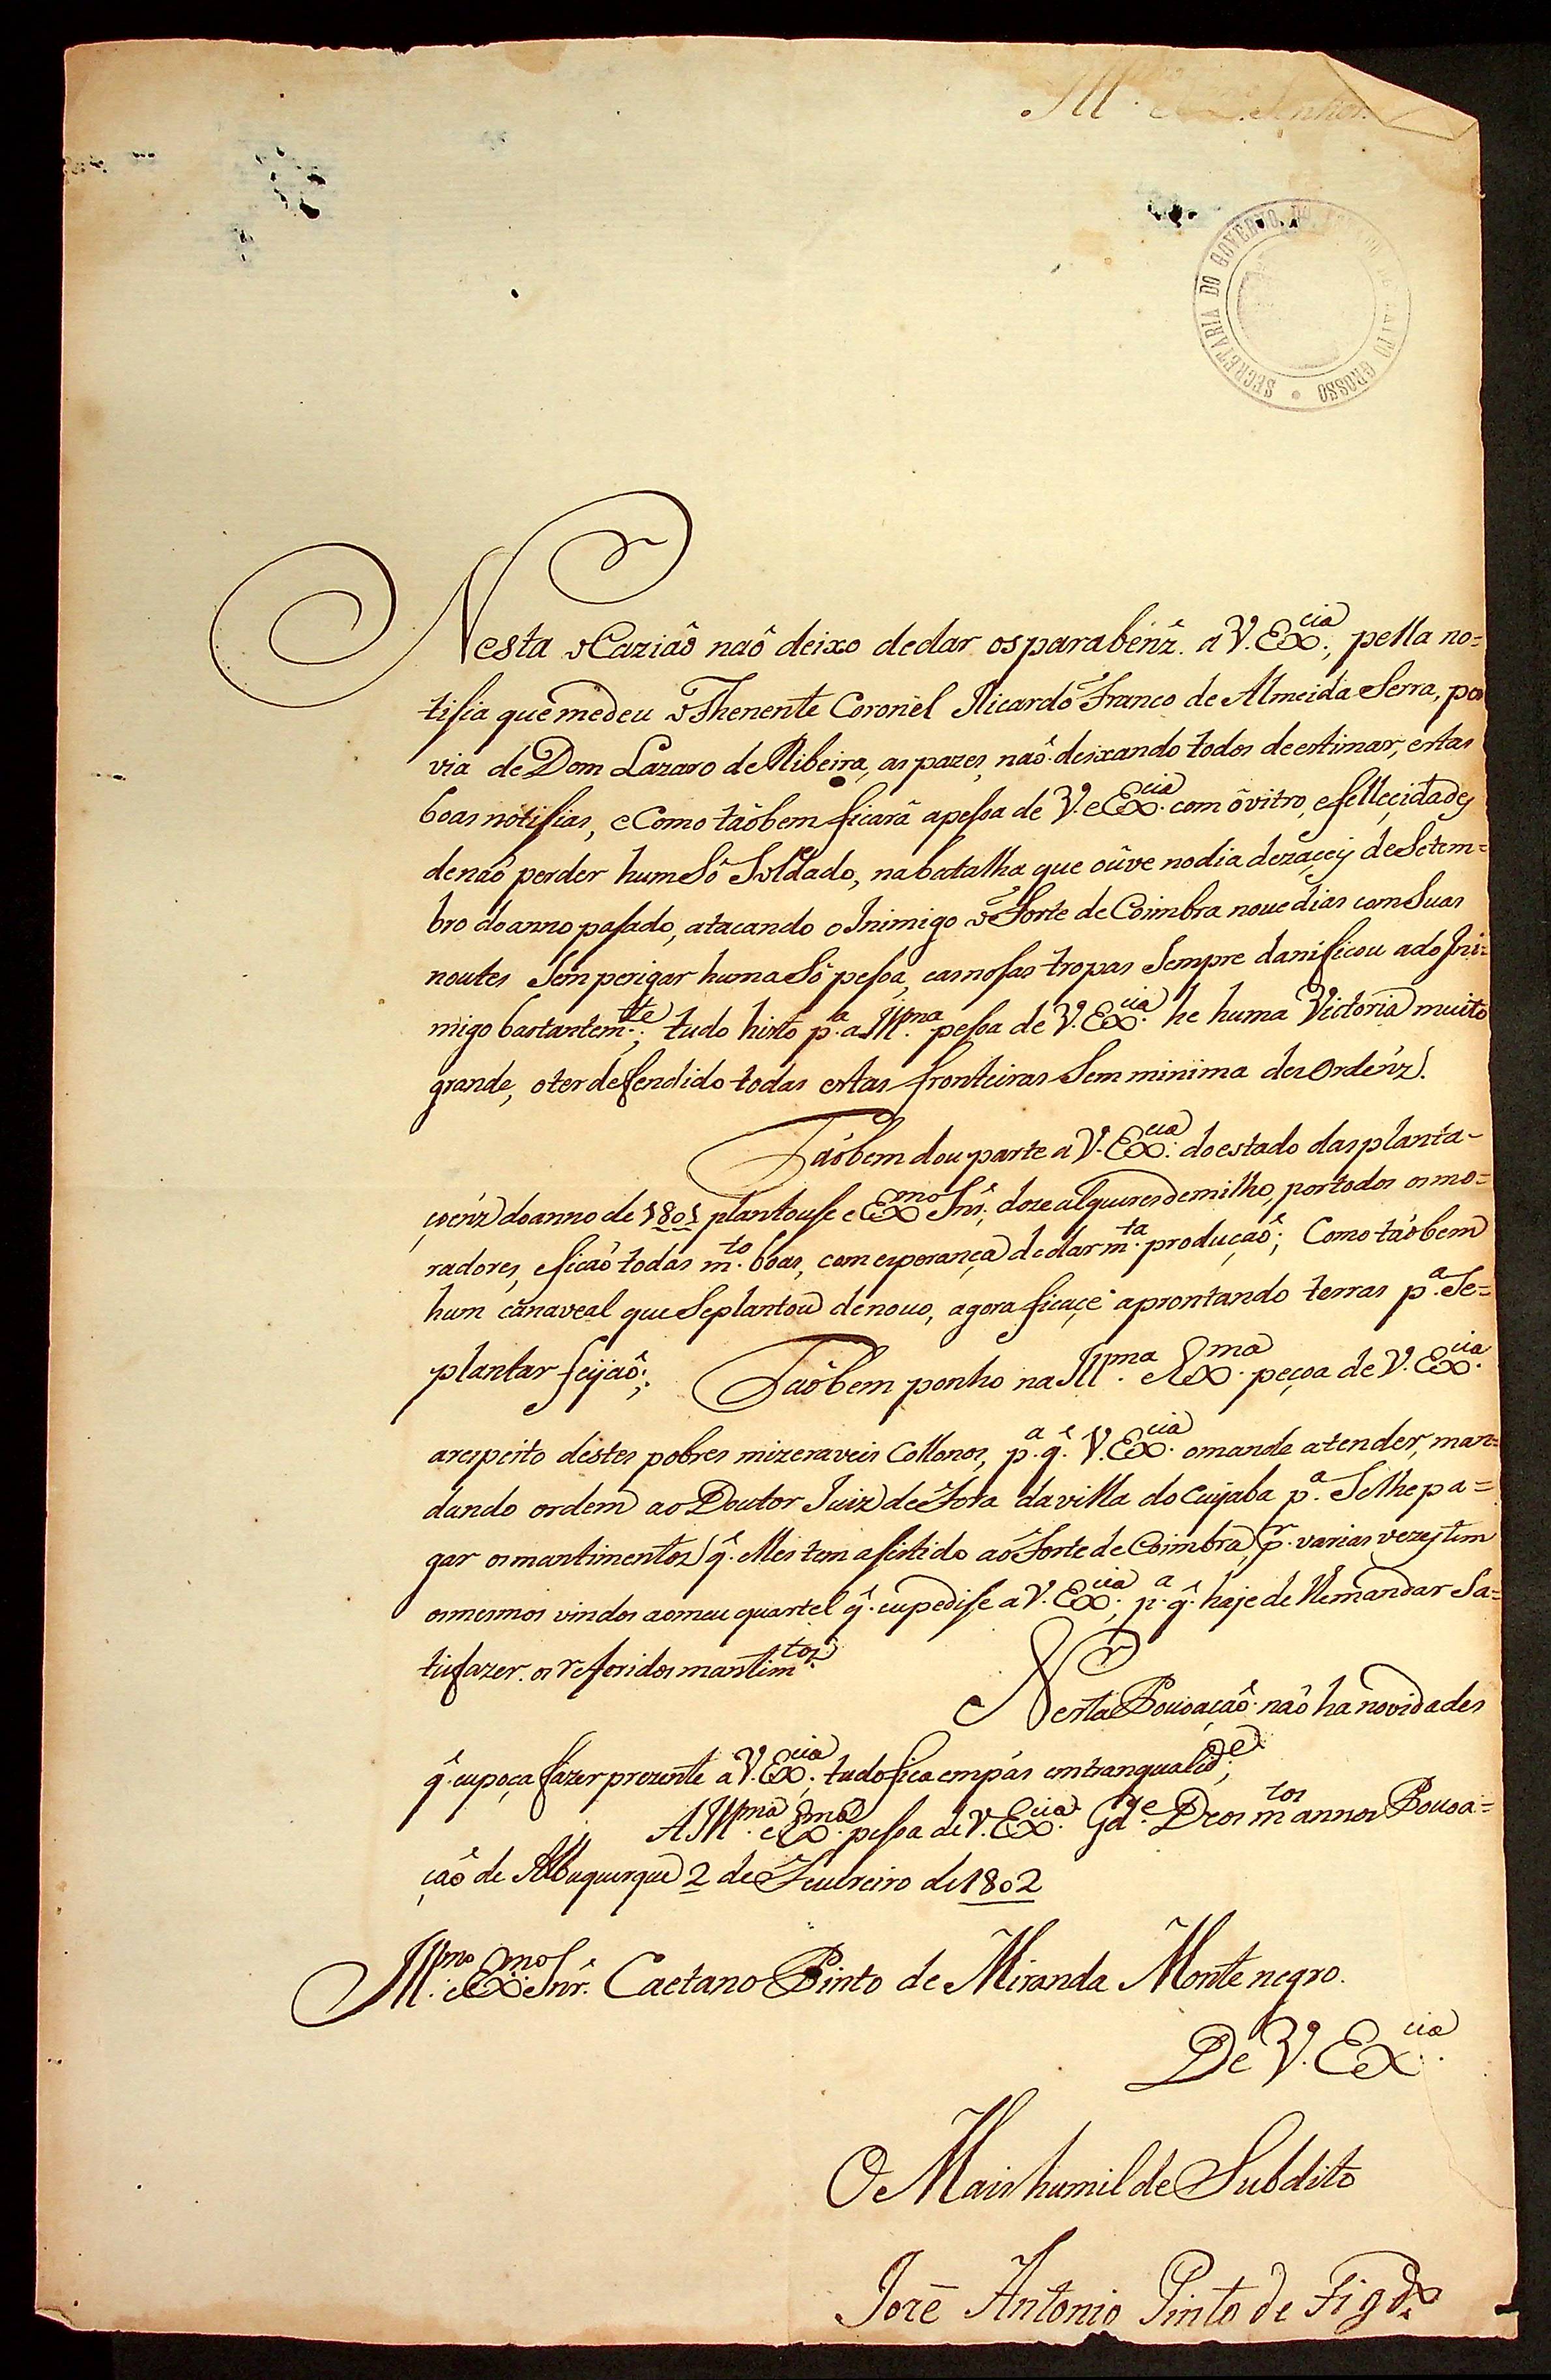 Ill.mo e Ex.mo Senhor.
SECRETARIA DO GOVERNO DO ESTADO DE MATTO GROSSO
Nesta oCaziaõ naõ deixo dedar osparabénz. a V. Ex.cia, pella no=
tisia que medeu oThenente Coronel Ricardo Franco de Almeida Serra, por
via de Dom Lazaro de Ribeira, as pazes, naõ deixando todos deestimar, estas
boas notisias, eComo taõbem ficará apesoa de V. Ex.cia com óvitro, efellecidades
denaõ perder humSó Soldado, nabatalha que oûve nodia dezaçey deSetem=
bro doanno pasado, atacando oInimigo oForte de Coimbra noue dias comSuas
noutes Sem perigar humaSó pesoa, easnosas tropas Sempre danificou ado Ini=
migo bastantem.te; tudo histo p.a a Ill.ma pesoa de V. Ex.cia he huma Victoria muito
grande, oterdeffendido todas estas fronteiras Sem minima desOrdénz.
Taõbem dou parte a V. Ex.cia doestado dasplanta-
çoenz doanno de 1801 plantouse e Ex.mo Snr., doze alqueires demilho, portodos osmo=
radores, eficaõ todas m.to boas, com esperança dedar m.ta produçaõ; Como taõbem
hum canaveal que Seplantou denouo, agora ficaçe aprontando terras p.a Se=
plantar feijaõ; Taõbem ponho na Ill.ma e Ex.ma peçoa de V. Ex.cia
arespeito destes pobres mizeraveis Collonos, p.a q. V. Ex.cia omande atender, man=
dando ordem ao Doutor Juiz deFora davilla do Cuyaba p.a Selhepa=
gar osmantimentos q. elles tem asistido aoForte de Coimbra, p.r varias vezes tem
osmesmos vindos aomeu quartel q. eupedise a V. Ex.cia, p.a q. haje de lhemandar Sa=
tisfazer os referidos mantim.tos
Nesta Pouoaçaõ naõ ha novidades
q. eupoça fázer prezente a V. Ex.cia; tudo fica empás emtranqualid.e;
A Ill.ma e Ex.ma pesoa de V. Ex.cia G.de Deos m.tos annos Pouoa=
çaõ de Albuquerque 2 de Feuereiro de 1802
Ill.mo e Ex.mo Snr. Caetano Pinto de Miranda Monte negro.
De V. Ex.cia
O Mais humilde Subdito
Joze Antonio Pinto de Fig.do